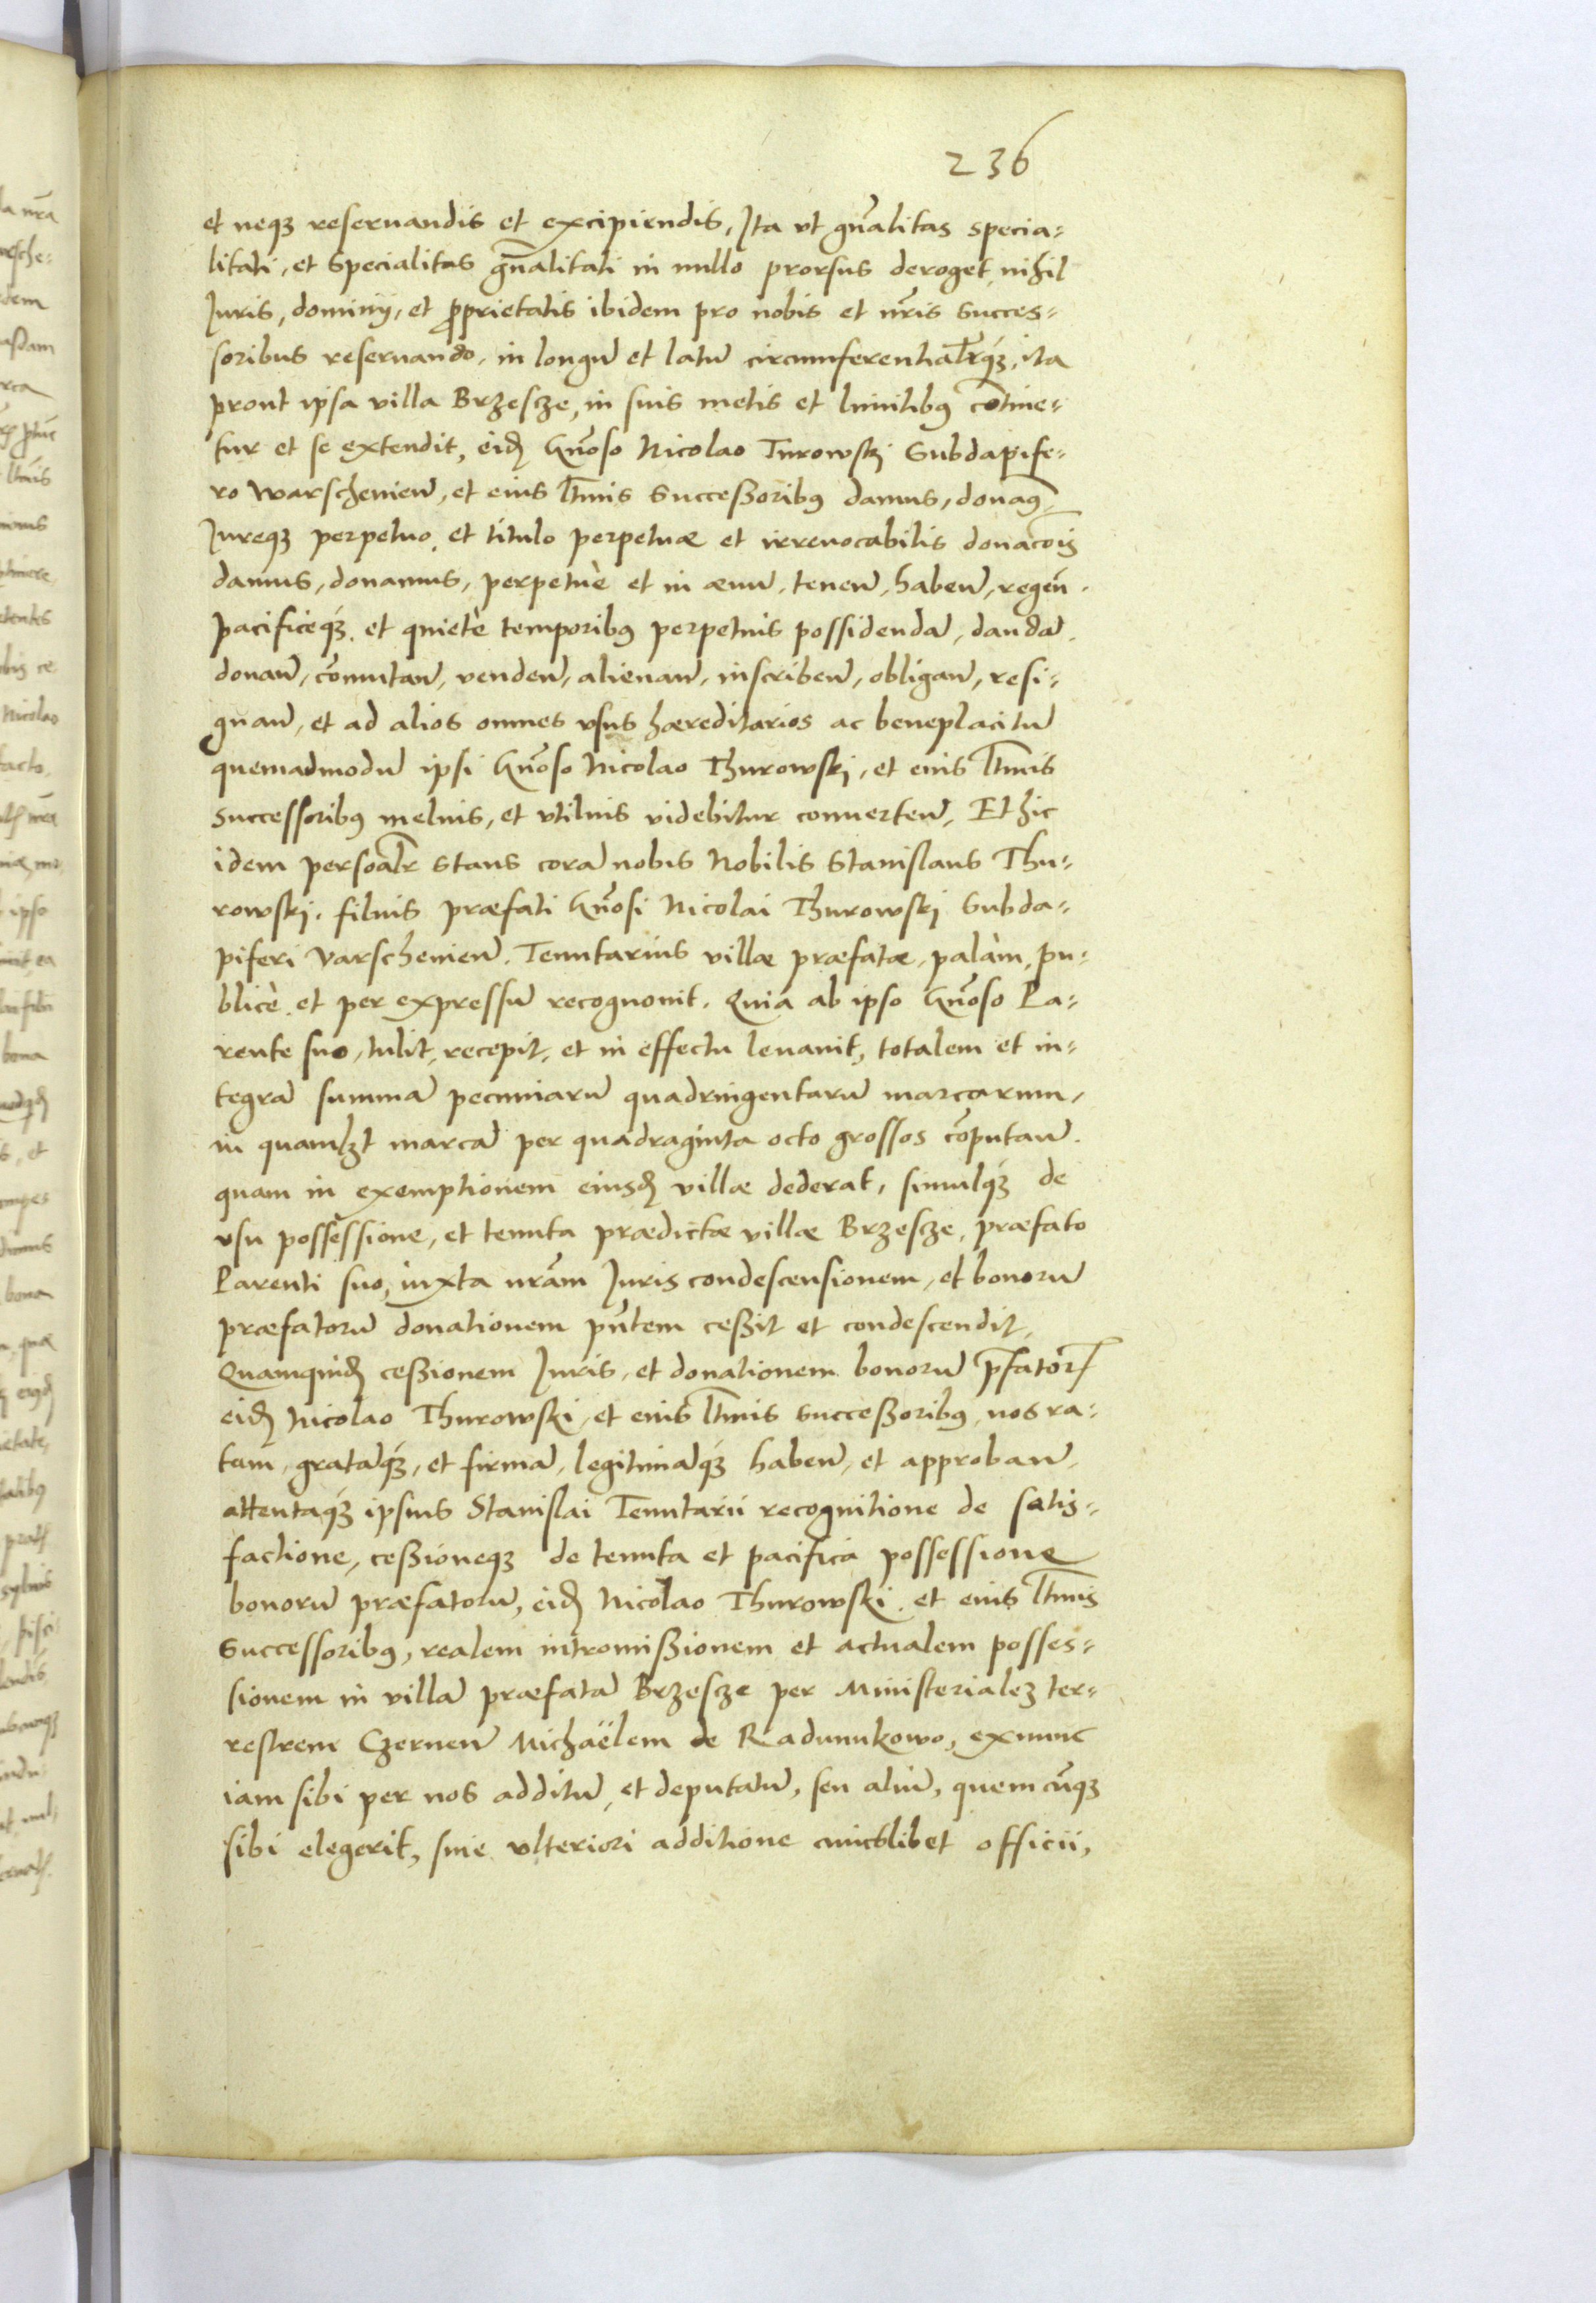 236
et neqꝫ reseruandis et excipiendis, Ita vt gñalitas specia-
litati, et Specialitas gñalitati in nullo prorsus deroget, nihil
Juris, dominij, et ꝓprietatis ibidem pro nobis et nr̃is succes-
soribus reseruando, in longũ et latũ circumferentialr̃qꝫ, ita
prout ipsa villa Brzescze, in suis metis et limitibꝰ cõtine-
tur et se extendit, eidꝫ Gñoso Nicolao Turowskj Subdapife-
ro Warscheñieñ, et eius lt̃imis Successoribꝰ damus, donaꝰ,
Jureqꝫ perpetuo, et titulo perpetuæ et irreuocabilis donac̃ois
damus, donamus, perpetuè et in æuũ, teneñ, habeñ, regeñ.
pacificeqꝫ, et quietè temporibꝰ perpetuis possidendã, dandã,
donañ, cõmutañ, vendeñ, alienañ, inscribeñ, obligañ, resi-
gnañ, et ad alios omnes vsus hæreditarios ac beneplacitũ
quemadmodũ ipsi Gñoso Nicolao Thurowskj, et eius lt̃imis
successoribꝰ melius, et vtilius videbitur conuerteñ, Et hic
idem persoalr̃ stans corã nobis Nobilis Stanislaus Thu-
rowskj, filius præfati Gñosi Nicolai Thurowskj Subda-
piferi Varschenieñ. Tenutarius villæ præfatæ, palàm, pu-
blicè, et per expressũ recognouit. Quia ab ipso Gñoso Pa-
rente suo, tulit, recepit, et in effectu leuauit, totalem et in-
tegrã summã pecuniarũ quadringentarũ marcarum,
in quamlꝫt marcã per quadraginta octo grossos cõputañ.
quam in exemptionem eiusdꝫ villæ dederat, simulqꝫ de
vsu possessione, et tenuta prædictæ villæ Brzescze, præfato
Parenti suo, iuxta nr̃am Juris condescensionem, et bonorũ
præfatorũ donationem pñtem ceßit et condescendit,
Quamquidꝫ ceßionem Juris, et donationem bonorũ p̃fatorꝝ
eidꝫ Nicolao Thurowski, et eius lt̃imis succeßoribꝰ, nos ra-
tam, gratãqꝫ, et firmã, legitimãqꝫ habeñ, et approbañ,
attentaqꝫ ipsius Stanislai Tenutarii recognitione de satis-
factione, ceßioneqꝫ de tenuta et pacifica possessione
bonorũ præfatorũ, eidꝫ Nicolao Thurowski, et eius lt̃imis
Successoribꝰ, realem intromißionem et actualem posses-
sionem in villã præfatã Brzescze per Ministerialeꝫ ter-
restrem Czerneñ Michaëlem de Radunukowo, exnunc
iam sibi per nos additũ, et deputatũ, seu aliũ, quem cũqꝫ
sibi elegerit, sine vlteriori additione cuiuslibet officii,